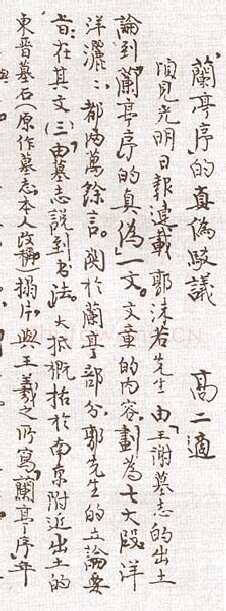 蘭亭序的真偽駁議 高二適
頃見光明日報連載郭沫若先生由「王謝墓志的出土
論到「蘭亭序的真偽」一文。文章的内容,劃為七大段,洋
洋灑灑,都為萬餘言。関於蘭亭部分,郭先生的立論要
旨:在其文(三)由墓志說到书法。大抵概括於南京附近出土的
東晋墓石(原作墓志,本人改稱)搨片,與王羲之所寫「蘭亭序」年